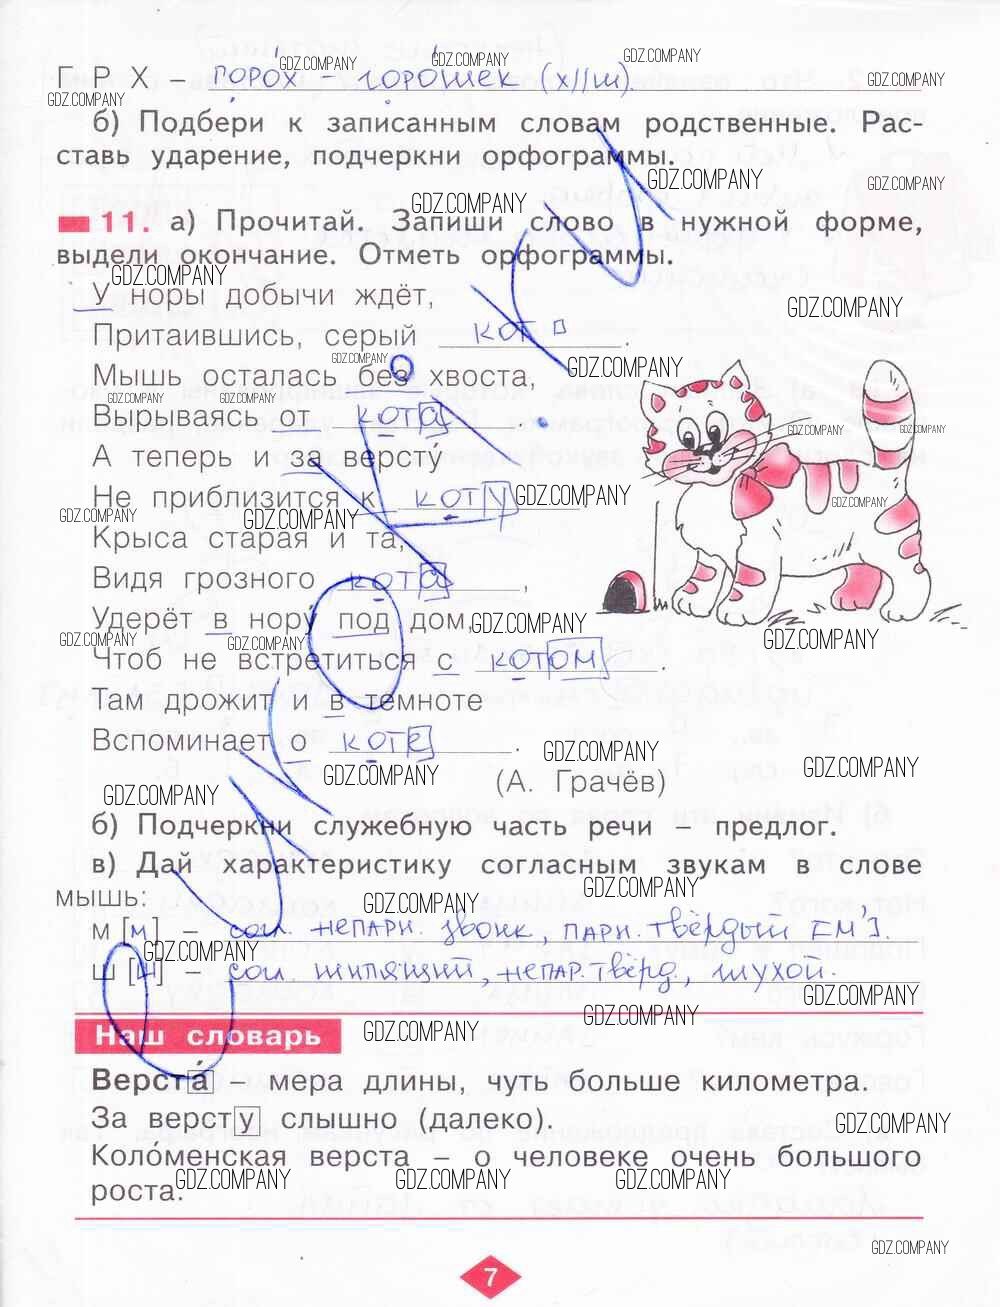 Г Р Х – горох – горошек (х//ш).
б) Подбери к записанным словам родственные. Рас-
ставь ударение, подчеркни орфограммы.
11. а) Прочитай. Запиши слово в нужной форме,
выдели окончание. Отметь орфограммы.
У норы добычи ждёт,
Притаившись, серый кот.
Мышь осталась без хвоста,
Вырываясь от кота.
А теперь и за версту
Не приблизится к коту,
Крыса старая и та,
Видя грозного кота,
Удерёт в нору́ под дом,
Чтоб не встретиться с котом.
Там дрожит и в темноте
Вспоминает о коте.
(А. Грачёв)
б) Подчеркни служебную часть речи – предлог.
в) Дай характеристику согласным звукам в слове
мышь:
м [м] – согл. непарн. звонк., парн. твёрдый [м'].
ш [ш] – согл. шипящий, непар. твёрд., глухой.
Наш словарь
Верста́ – мера длины, чуть больше километра.
За версту слышно (далеко).
Коло́менская верста – о человеке очень большого
роста.
7
GDZ.COMPANY